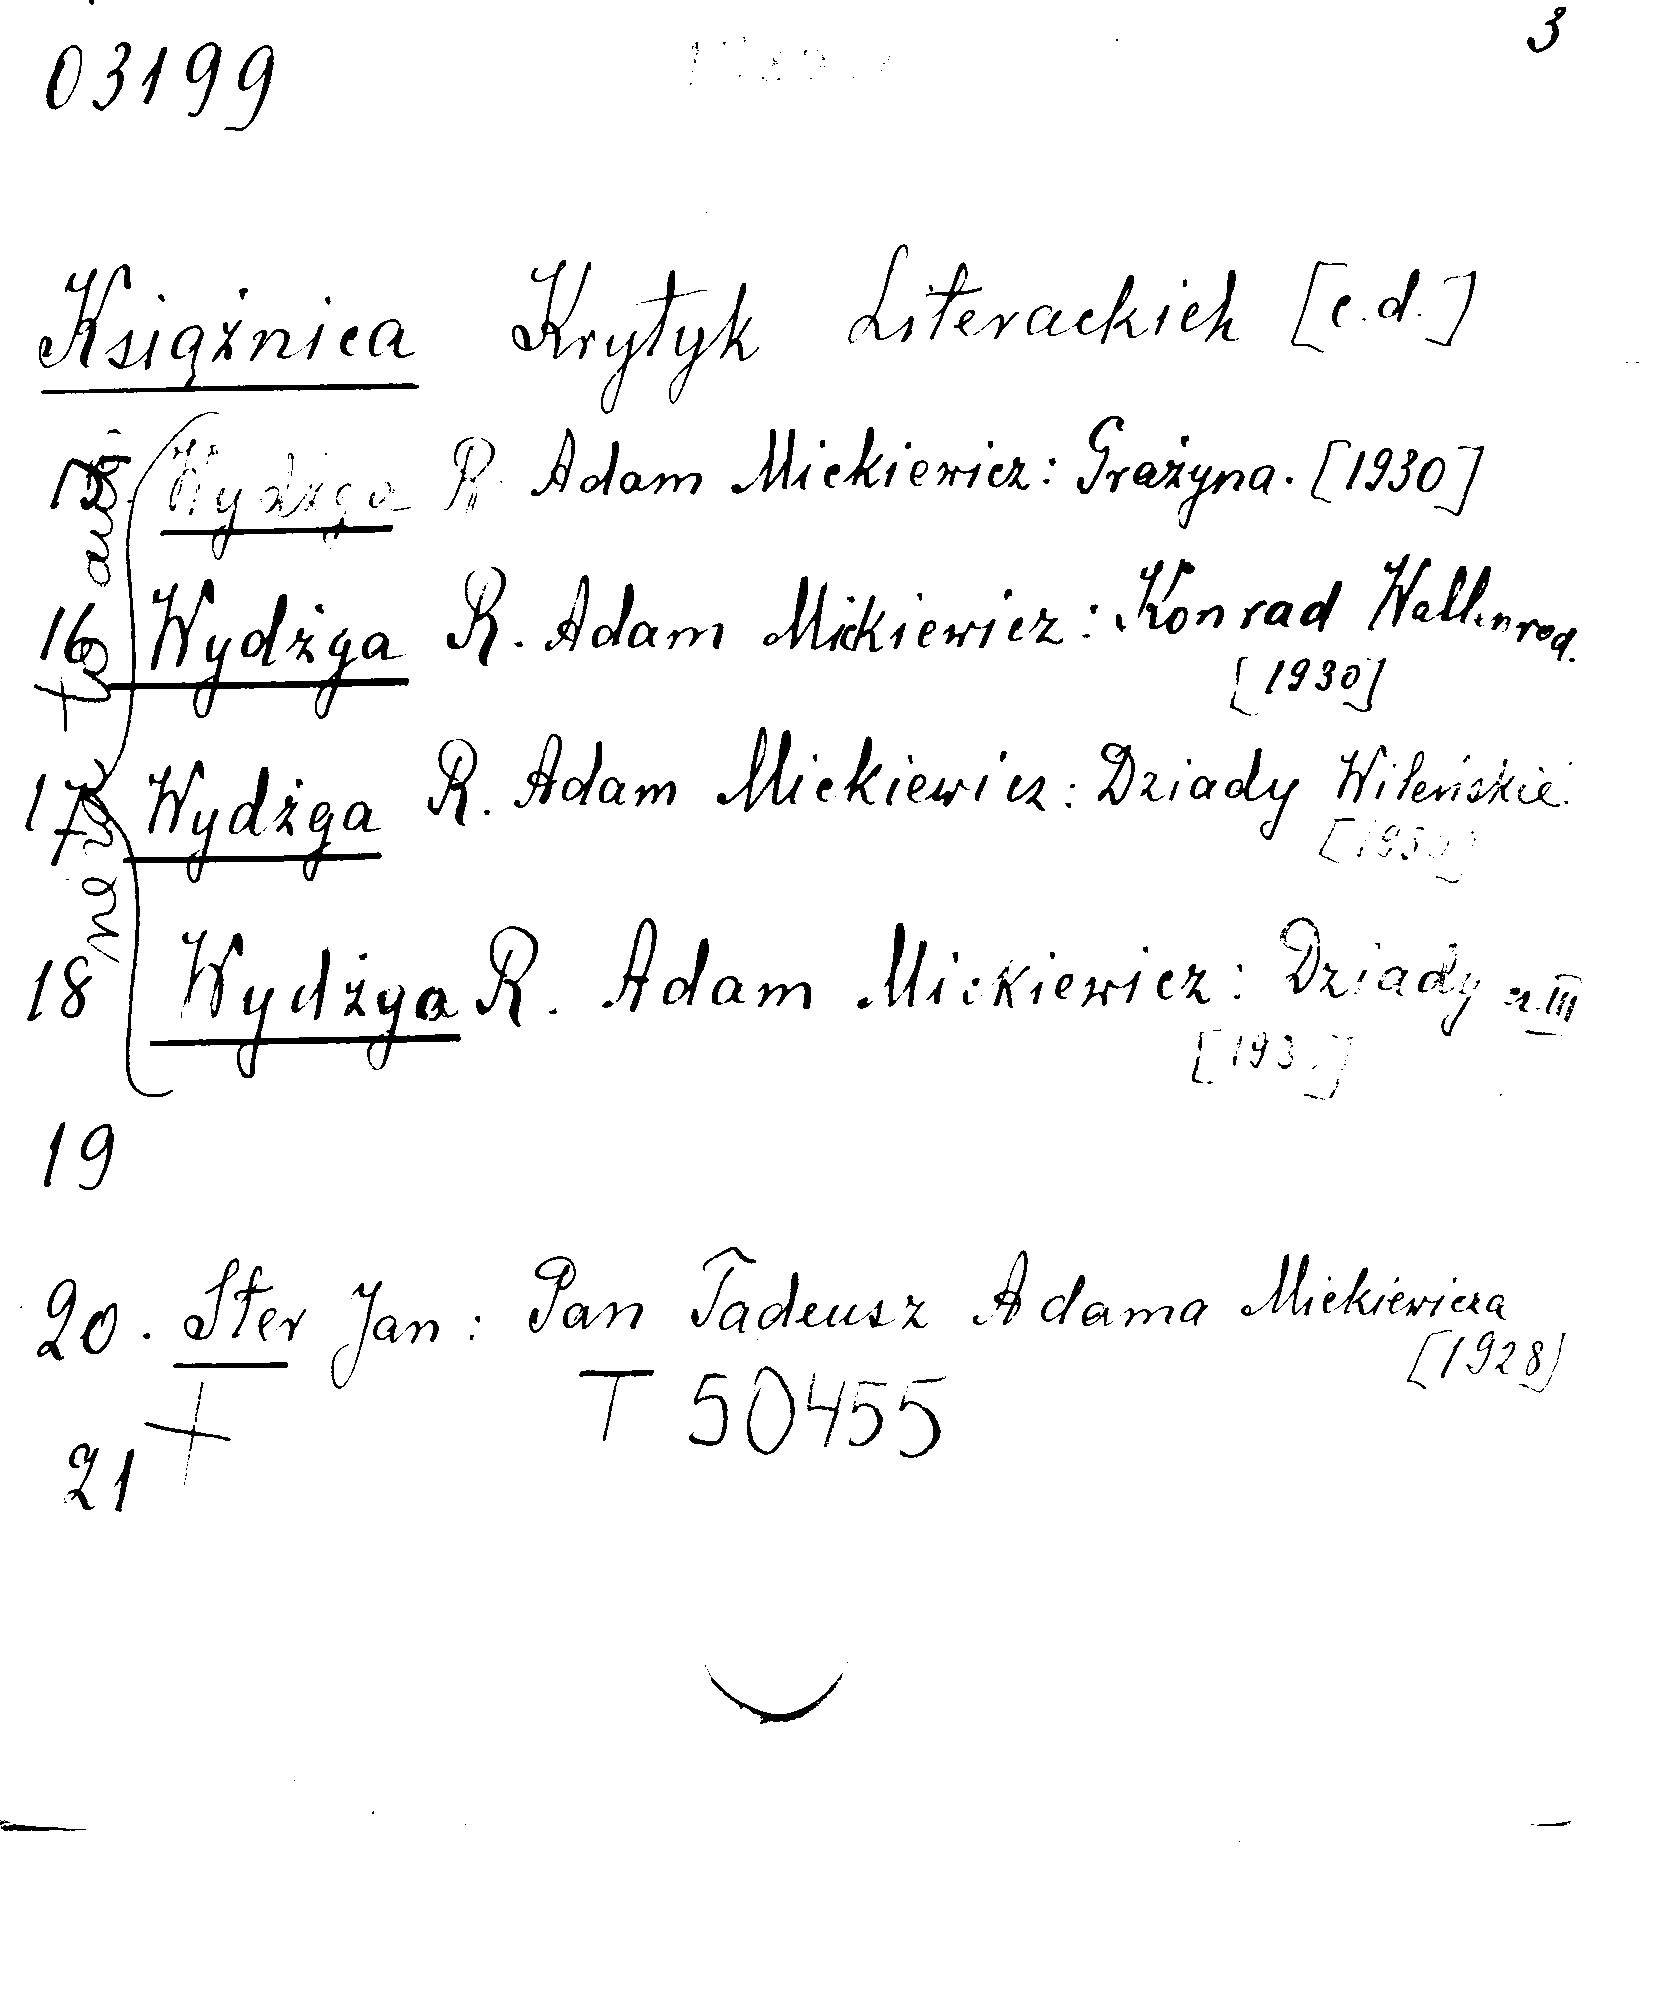 3
03199
Książnica Krytyk Literackich [c.d.]
15. Wydżga R. Adam Mickiewicz: Grażyna. [1930]
16 Wydżga R. Adam Mickiewicz: Konrad Wallenrod.
[1930]
17 Wydżga R. Adam Mickiewicz: Dziady Wileńskie.
[1930]
18 Wydżga R. Adam Mickiewicz: Dziady cz. III
[193 ]
19
20. Ster Jan: Pan Tadeusz Adama Mickiewicza
[1928]
T 50455
21